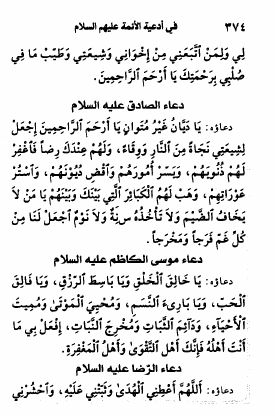 ٣٧٤ في أدعية الأئمة عليهم السلام
لِي وَلِمَنْ ٱتَّبَعَنِي مِنْ إِخْوَانِي وَشِيعَتِي وَطَيِّبْ مَا فِي
صُلْبِي بِرَحْمَتِكَ يَا أَرْحَمَ ٱلرَّاحِمِينَ.
دعاء الصادق عليه السلام
دعاؤه: يَا دَيَّانُ غَيْرُ مُتَوَانٍ يَا أَرْحَمَ ٱلرَّاحِمِينَ إِجْعَلْ
لِشِيعَتِي نَجَاةً مِنَ ٱلنَّارِ وَوِقَاءً، وَلَهُمْ عِنْدَكَ رِضاً فَٱغْفِرْ
لَهُمْ ذُنُوبَهُمْ، وَيَسِّرْ أُمُورَهُمْ وَٱقْضِ دُيُونَهُمْ، وَٱسْتُرْ
عَوْرَاتِهِمْ، وَهَبْ لَهُمُ ٱلْكَبَائِرَ ٱلَّتِي بَيْنَكَ وَبَيْنَهُمْ يَا مَنْ لاَ
يَخَافُ ٱلضَّيْمَ وَلاَ تَأْخُذُهُ سِنَةٌ وَلاَ نَوْمٌ ٱجْعَلْ لَنَا مِنْ
كُلِّ غَمٍّ فَرَجاً وَمَخْرَجاً.
دعاء موسى الكاظم عليه السلام
دعاؤه: يَا خَالِقَ ٱلْخَلْقِ وَيَا بَاسِطَ ٱلرِّزْقِ، وَيَا فَالِقَ
ٱلْحَبِّ، وَيَا بَارِىءَ ٱلنَّسَمِ، وَمُحْيِيَ ٱلْمَوْتَىٰ وَمُمِيتَ
ٱلْأَحْيَاءِ، وَدَائِمَ ٱلثَّبَاتِ وَمُخْرِجَ ٱلنَّبَاتِ، إِفْعَلْ بِي مَا
أَنْتَ أَهْلُهُ فَإِنَّكَ أَهْلُ ٱلتَّقْوَىٰ وَأَهْلُ ٱلْمَغْفِرَةِ.
دعاء الرّضا عليه السلام
دعاؤه: أَللَّهُمَّ أَعْطِنِي ٱلْهُدَىٰ وَثَبِّتْنِي عَلَيْهِ، وَٱحْشُرْنِي